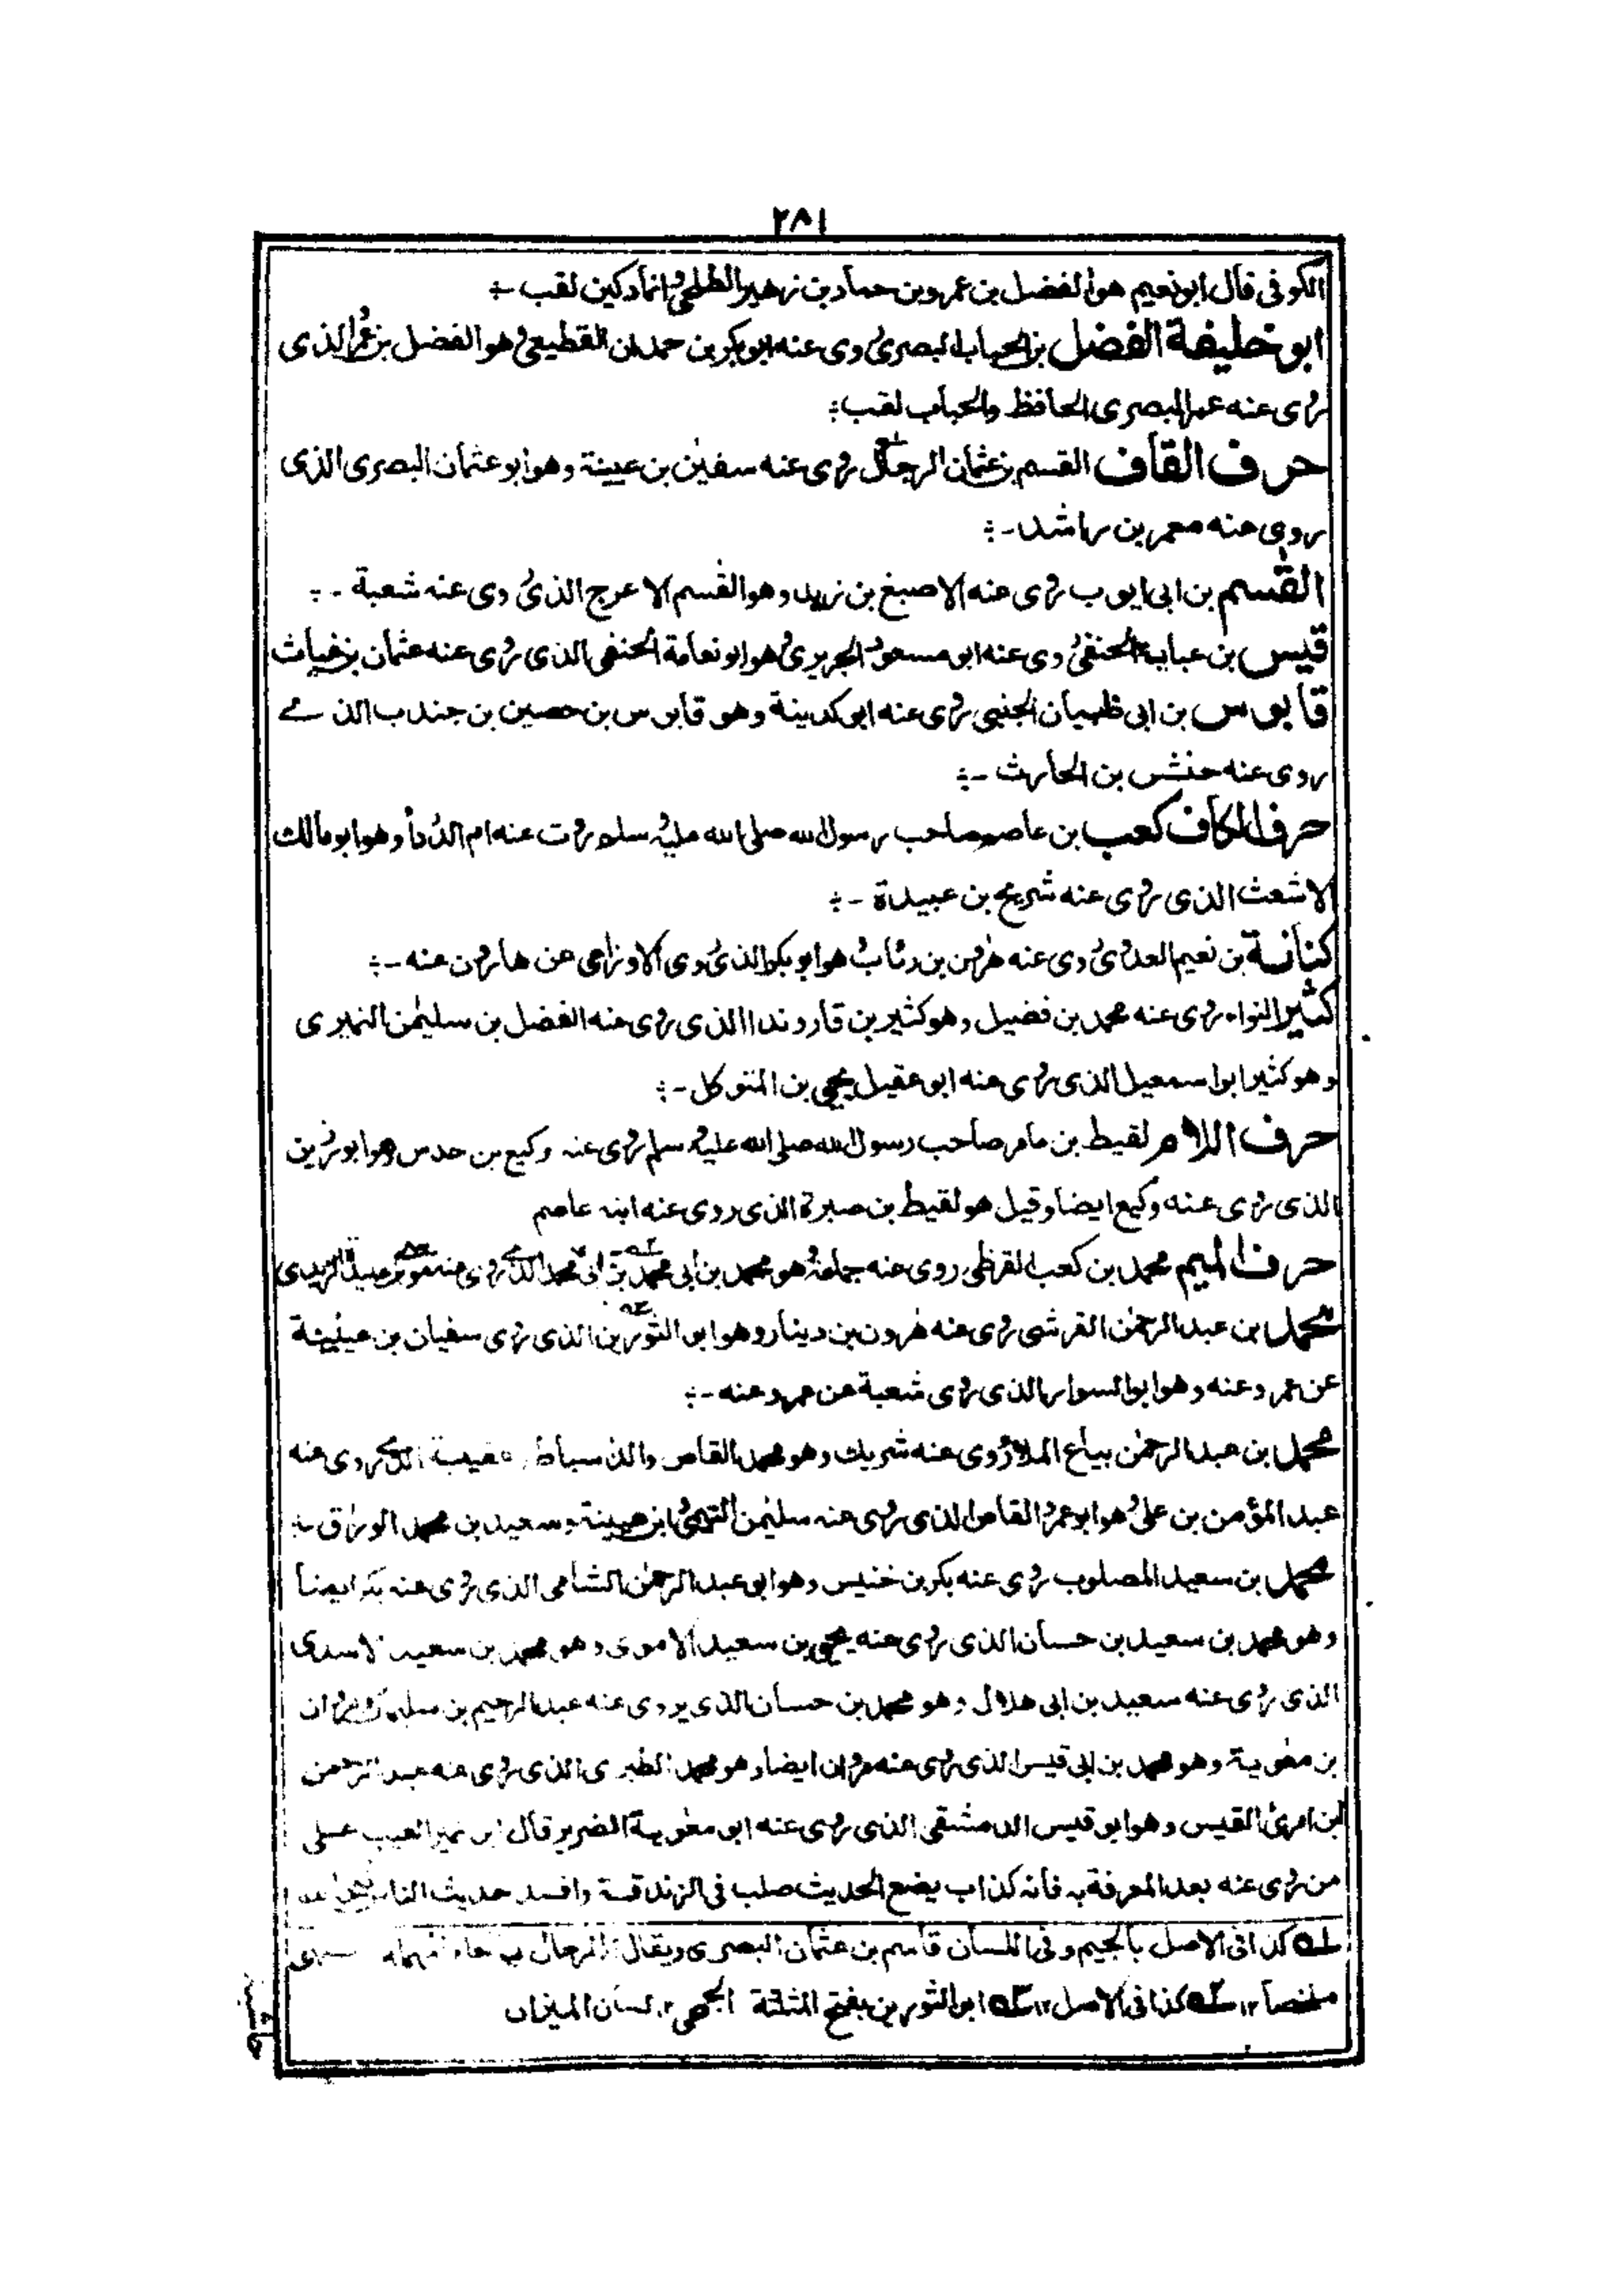 ٢٨١
الكوفى قال ابونعيم هو الفضل بن عمرو بن حماد بن زهير الطلحى وانما دكين لقب
ابو خليفة الفضل بن الحباب البصرى روى عنه ابو بكر بن حمدان القطيعى وهو الفضل بن عمرو الذى
روى عنه عمر البصرى الحافظ والحباب لقب
حرف القاف القسم بن عثمان الرجال روى عنه سفين بن عيينة وهو ابو عثمان البصرى الذى
روى عنه معمر بن راشد
القسم بن ابى ايوب روى عنه الاصبغ بن زيد وهو القسم الاعرج الذى روى عنه شعبة
قيس بن عباية الحنفى روى عنه ابو مسعود الجريرى وهو ابو نعامة الحنفى الذى روى عنه عثمان بن غياث
قابوس بن ابى ظبيان الجنبى روى عنه ابو كدينة وهو قابوس بن حصين بن جندب الذى
روى عنه حنش بن الحارث
حرف الكاف كعب بن عاصم صاحب رسول الله صلى الله عليه وسلم روت عنه ام الدرداء وهو ابو مالك
الاشعث الذى روى عنه شريح بن عبيدة
كنانة بن نعيم العدوى روى عنه هرون بن رئاب وهو ابو بكر الذى روى الاوزاعى عن هارون عنه
كثير النواء روى عنه محمد بن فضيل وهو كثير بن قاروندا الذى روى عنه الفضل بن سليمن النميرى
وهو كثير ابو اسمعيل الذى روى عنه ابو عقيل يحيى بن المتوكل
حرف اللام لقيط بن عامر صاحب رسول الله صلى الله عليه وسلم روى عنه وكيع بن حدس وهو ابو رزين
الذى روى عنه وكيع ايضا وقيل هو لقيط بن صبرة الذى روى عنه ابنه عاصم
حرف الميم محمد بن كعب القرظى روى عنه جماعة وهو محمد بن ابى محمد بن ابى محمد الذى روى عنه موسى بن عبيدة الربذى
محمد بن عبد الرحمن القرشى روى عنه هرون بن دينار وهو ابو الثورين الذى روى سفيان بن عيينة
عن عمرو عنه وهو ابو السوار الذى روى شعبة عن عمرو عنه
محمد بن عبد الرحمن بياع الملاء روى عنه شريك وهو محمد القاص والد سباط الذى روى عنه
عبد المؤمن بن على وهو ابو عمرو القاص الذى روى عنه سليمن التيمى وابن عيينة وسعيد بن محمد الوراق
محمد بن سعيد المصلوب روى عنه بكر بن خنيس وهو ابو عبد الرحمن الشامى الذى روى عنه بكر ايضا
وهو محمد بن سعيد بن حسان الذى روى عنه يحيى بن سعيد الاموى وهو محمد بن سعيد الاسدى
الذى روى عنه سعيد بن ابى هلال وهو محمد بن حسان الذى يروى عنه عبد الرحيم بن سليمان ومروان
بن معوية وهو محمد بن ابى قيس الذى روى عنه مروان ايضا وهو محمد الطبرى الذى روى عنه عبد الرحمن
ابن امرئ القيس وهو ابو قيس الدمشقى الذى روى عنه ابو معوية الضرير قال ابن نمير العيب على
من روى عنه بعد المعرفة به فانه كذاب يضع الحديث صلب فى الزندقة وافسد حديث الناس
له كذا فى الاصل بالجيم وفى اللسان قاسم بن عثمان البصرى ويقال الرحال بحاء مهملة
ملخصا ١٢ ٢ه كذا فى الاصل ١٢ ٣ه ابو الثورين بفتح المثلثة الجمحى ١٢ لسان الميزان